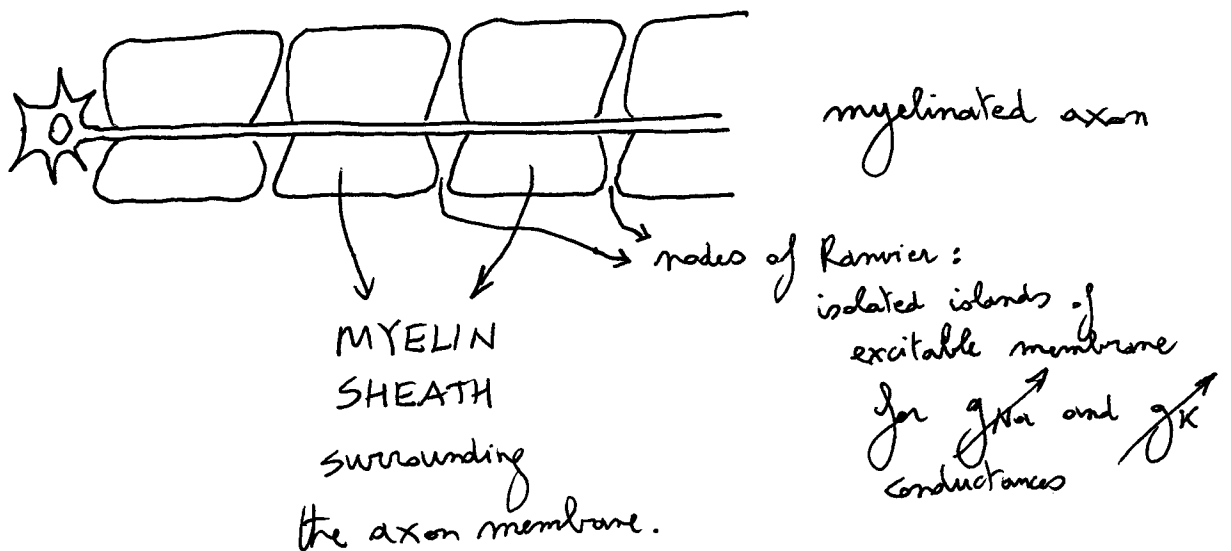 myelinated axon
nodes of Ranvier :
isolated islands of
excitable membrane
for gNa and gK
conductances
MYELIN
SHEATH
surrounding
the axon membrane.